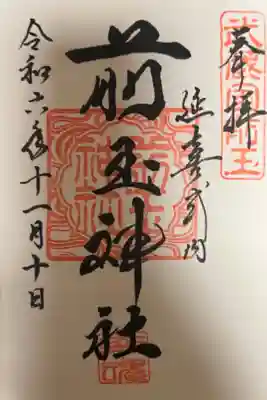 奉拝
延喜式内
前玉神社
令和六年十一月十日